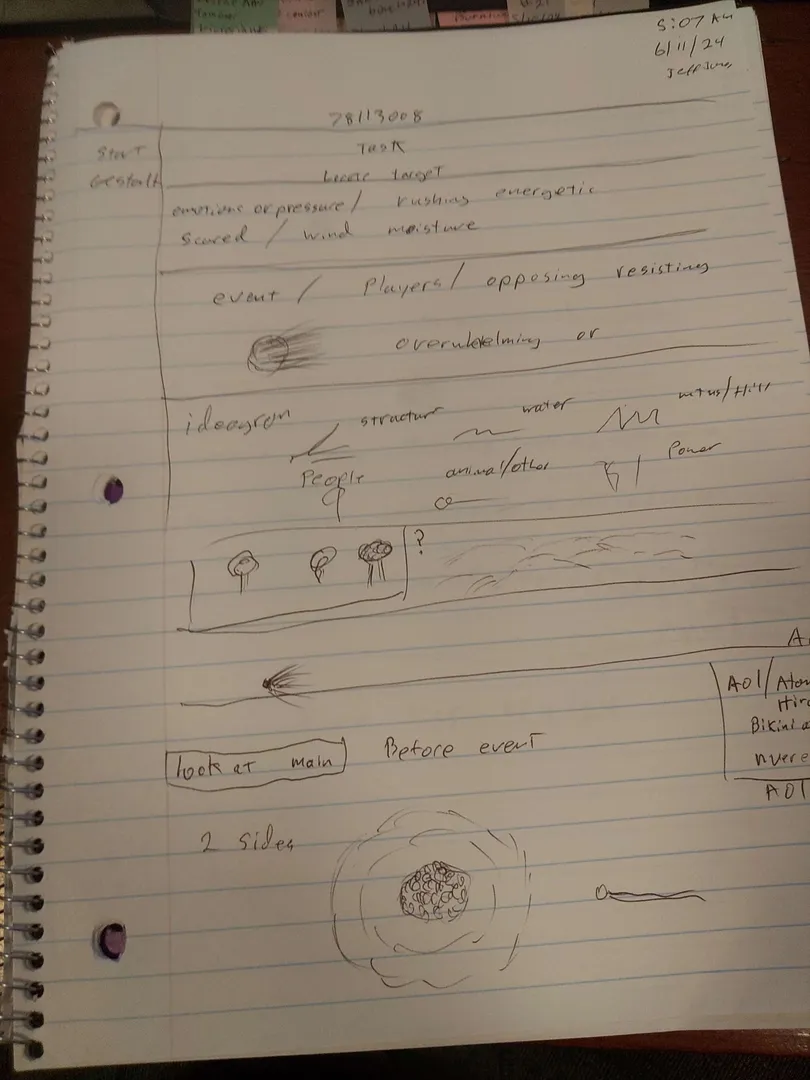 5:07 AM
6/11/24
78113008
Start
Task
Gestalt
target
emotions or pressure / rushing energetic
Scared / wind moisture
event / Players / opposing resisting
or
ideogram
structur
water
People
animal/other
Power
?
AOl /
Bikini
look at main
Before event
AOl
2 sides